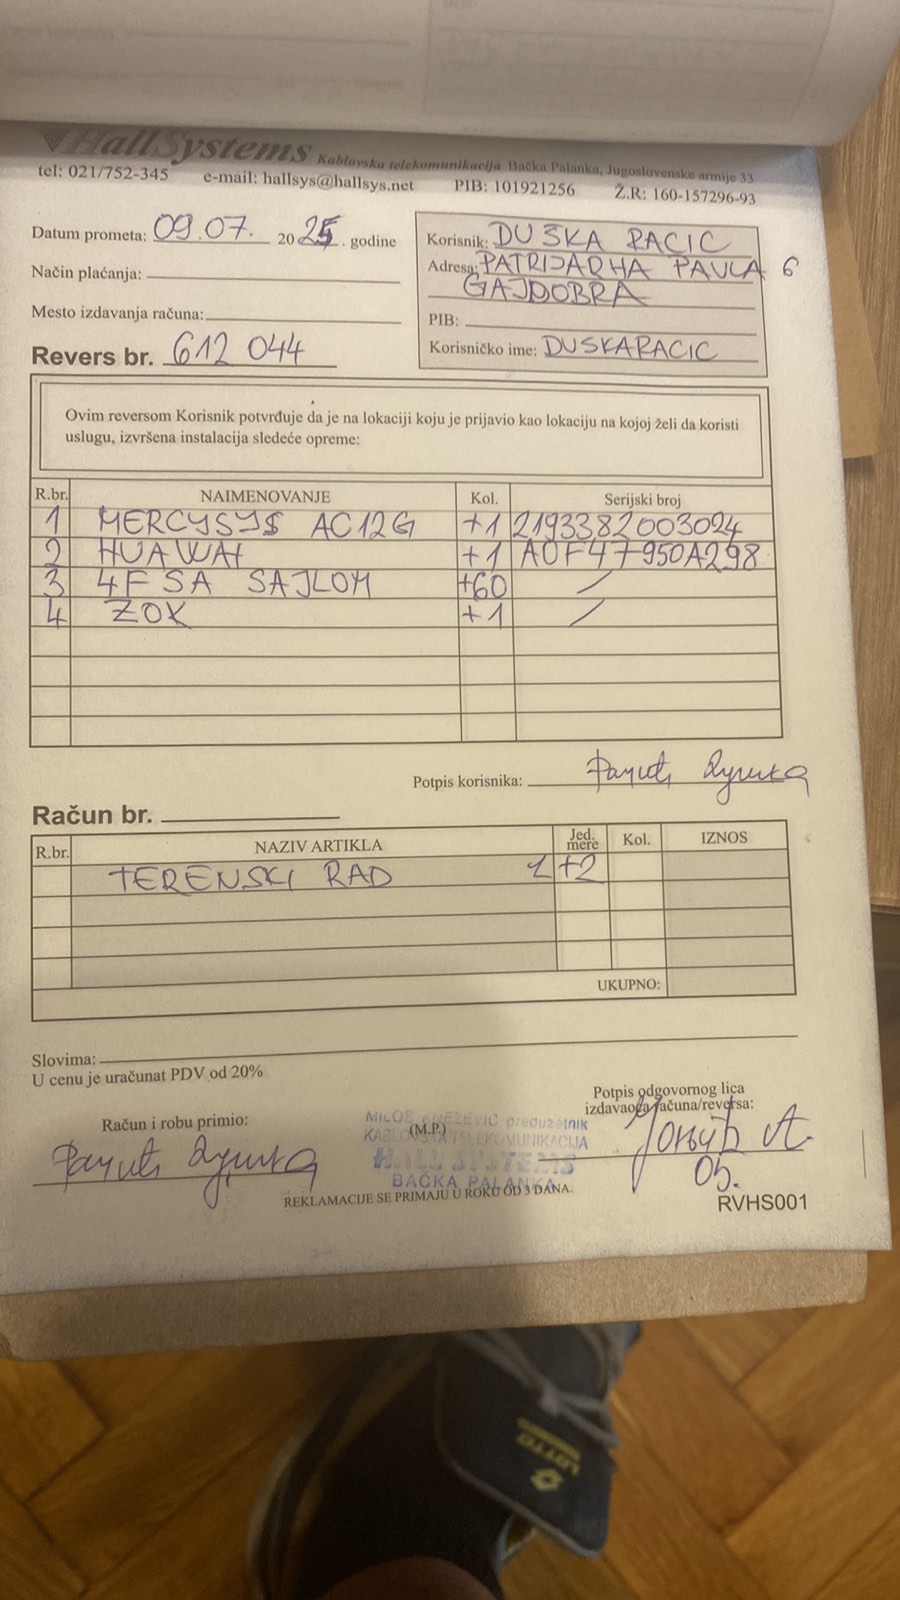 HallSystems Kablovska telekomunikacija Bačka Palanka, Jugoslovenske armije 33
tel: 021/752-345 e-mail: hallsys@hallsys.net PIB: 101921256 Ž.R: 160-157296-93
Datum prometa: 09.07. 2025. godine
Način plaćanja:
Mesto izdavanja računa:
Revers br. 612 044
Korisnik: DUŠKA RACIC
Adresa: PATRIJARHA PAVLA 6
GAJDOBRA
PIB:
Korisničko ime: DUSKARACIC
Ovim reversom Korisnik potvrđuje da je na lokaciji koju je prijavio kao lokaciju na kojoj želi da koristi
uslugu, izvršena instalacija sledeće opreme:
R.br. NAIMENOVANJE Kol. Serijski broj
1 MERCYSYS AC12G +1 2193382003024
2 HUAWAI +1 A0F47950A298
3 4F SA SAJLOM +60 /
4 ZOK +1 /
Potpis korisnika: Рацић Душка
Račun br.
R.br. NAZIV ARTIKLA Jed. mere Kol. IZNOS
TERENSKI RAD 1 +2
UKUPNO:
Slovima:
U cenu je uračunat PDV od 20%
Račun i robu primio:
Рацић Душка
(M.P.)
MILOŠ KNEŽEVIĆ preduzetnik
KABLOVSKA TELEKOMUNIKACIJA
HALL SYSTEMS
BAČKA PALANKA
Potpis odgovornog lica
izdavaoca računa/reversa:
05.
REKLAMACIJE SE PRIMAJU U ROKU OD 3 DANA.
RVHS001
LOTTO